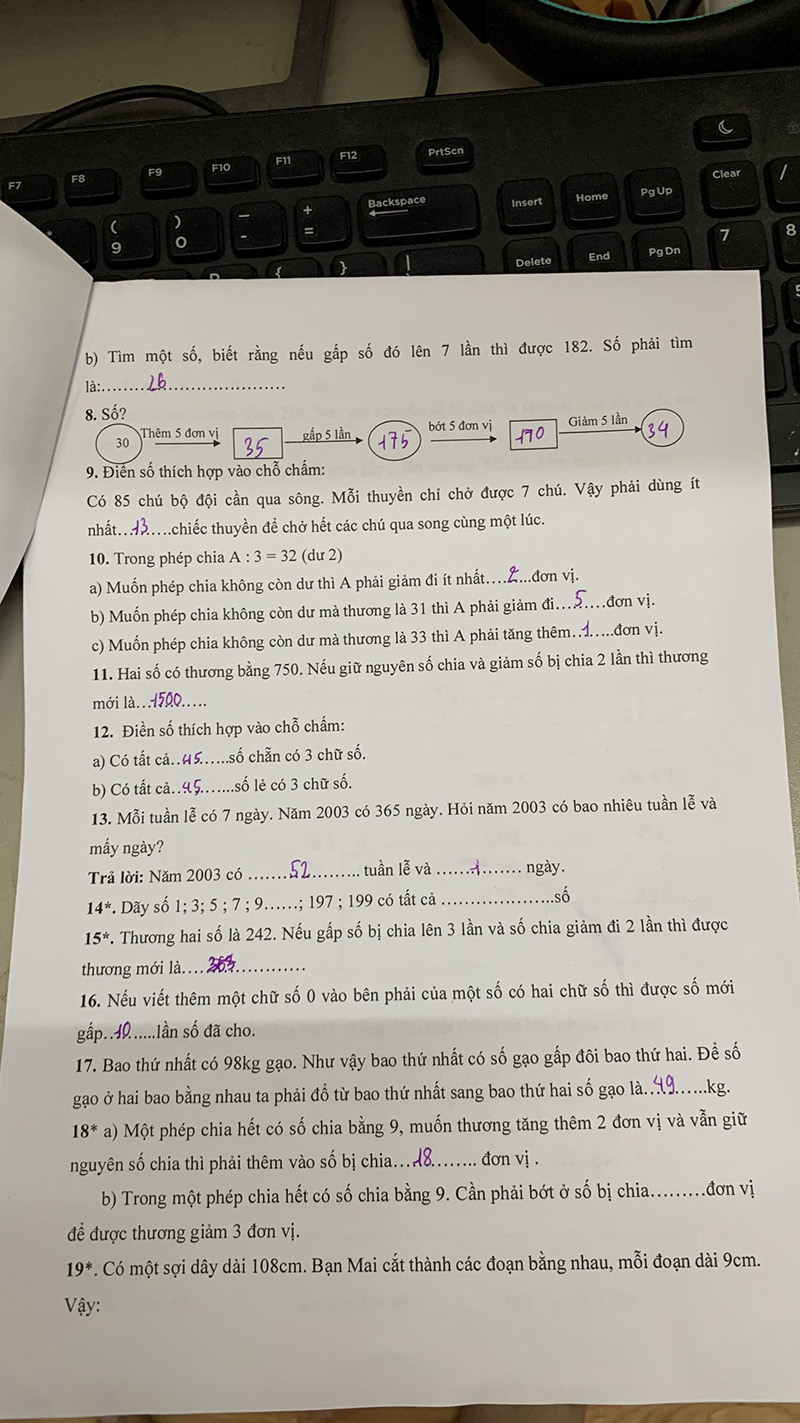 F7 F8 F9 F10 F11 F12 PrtScn
( 9 ) 0 _ - + = Backspace Insert Home Pg Up Clear /
{ } Delete End Pg Dn 7 8
b) Tìm một số, biết rằng nếu gấp số đó lên 7 lần thì được 182. Số phải tìm
là:.......26......................
8. Số?
30 Thêm 5 đơn vị 35 gấp 5 lần 175 bớt 5 đơn vị 170 Giảm 5 lần 34
9. Điền số thích hợp vào chỗ chấm:
Có 85 chú bộ đội cần qua sông. Mỗi thuyền chỉ chở được 7 chú. Vậy phải dùng ít
nhất...13.....chiếc thuyền để chở hết các chú qua song cùng một lúc.
10. Trong phép chia A : 3 = 32 (dư 2)
a) Muốn phép chia không còn dư thì A phải giảm đi ít nhất....2...đơn vị.
b) Muốn phép chia không còn dư mà thương là 31 thì A phải giảm đi...5....đơn vị.
c) Muốn phép chia không còn dư mà thương là 33 thì A phải tăng thêm..1.....đơn vị.
11. Hai số có thương bằng 750. Nếu giữ nguyên số chia và giảm số bị chia 2 lần thì thương
mới là...1500.....
12. Điền số thích hợp vào chỗ chấm:
a) Có tất cả..45......số chẵn có 3 chữ số.
b) Có tất cả..45.......số lẻ có 3 chữ số.
13. Mỗi tuần lễ có 7 ngày. Năm 2003 có 365 ngày. Hỏi năm 2003 có bao nhiêu tuần lễ và
mấy ngày?
Trả lời: Năm 2003 có .......52......... tuần lễ và ......1....... ngày.
14*. Dãy số 1; 3; 5 ; 7 ; 9......; 197 ; 199 có tất cả ...................số
15*. Thương hai số là 242. Nếu gấp số bị chia lên 3 lần và số chia giảm đi 2 lần thì được
thương mới là....363............
16. Nếu viết thêm một chữ số 0 vào bên phải của một số có hai chữ số thì được số mới
gấp..10......lần số đã cho.
17. Bao thứ nhất có 98kg gạo. Như vậy bao thứ nhất có số gạo gấp đôi bao thứ hai. Để số
gạo ở hai bao bằng nhau ta phải đổ từ bao thứ nhất sang bao thứ hai số gạo là..49......kg.
18* a) Một phép chia hết có số chia bằng 9, muốn thương tăng thêm 2 đơn vị và vẫn giữ
nguyên số chia thì phải thêm vào số bị chia...18........ đơn vị .
b) Trong một phép chia hết có số chia bằng 9. Cần phải bớt ở số bị chia.........đơn vị
để được thương giảm 3 đơn vị.
19*. Có một sợi dây dài 108cm. Bạn Mai cắt thành các đoạn bằng nhau, mỗi đoạn dài 9cm.
Vậy: